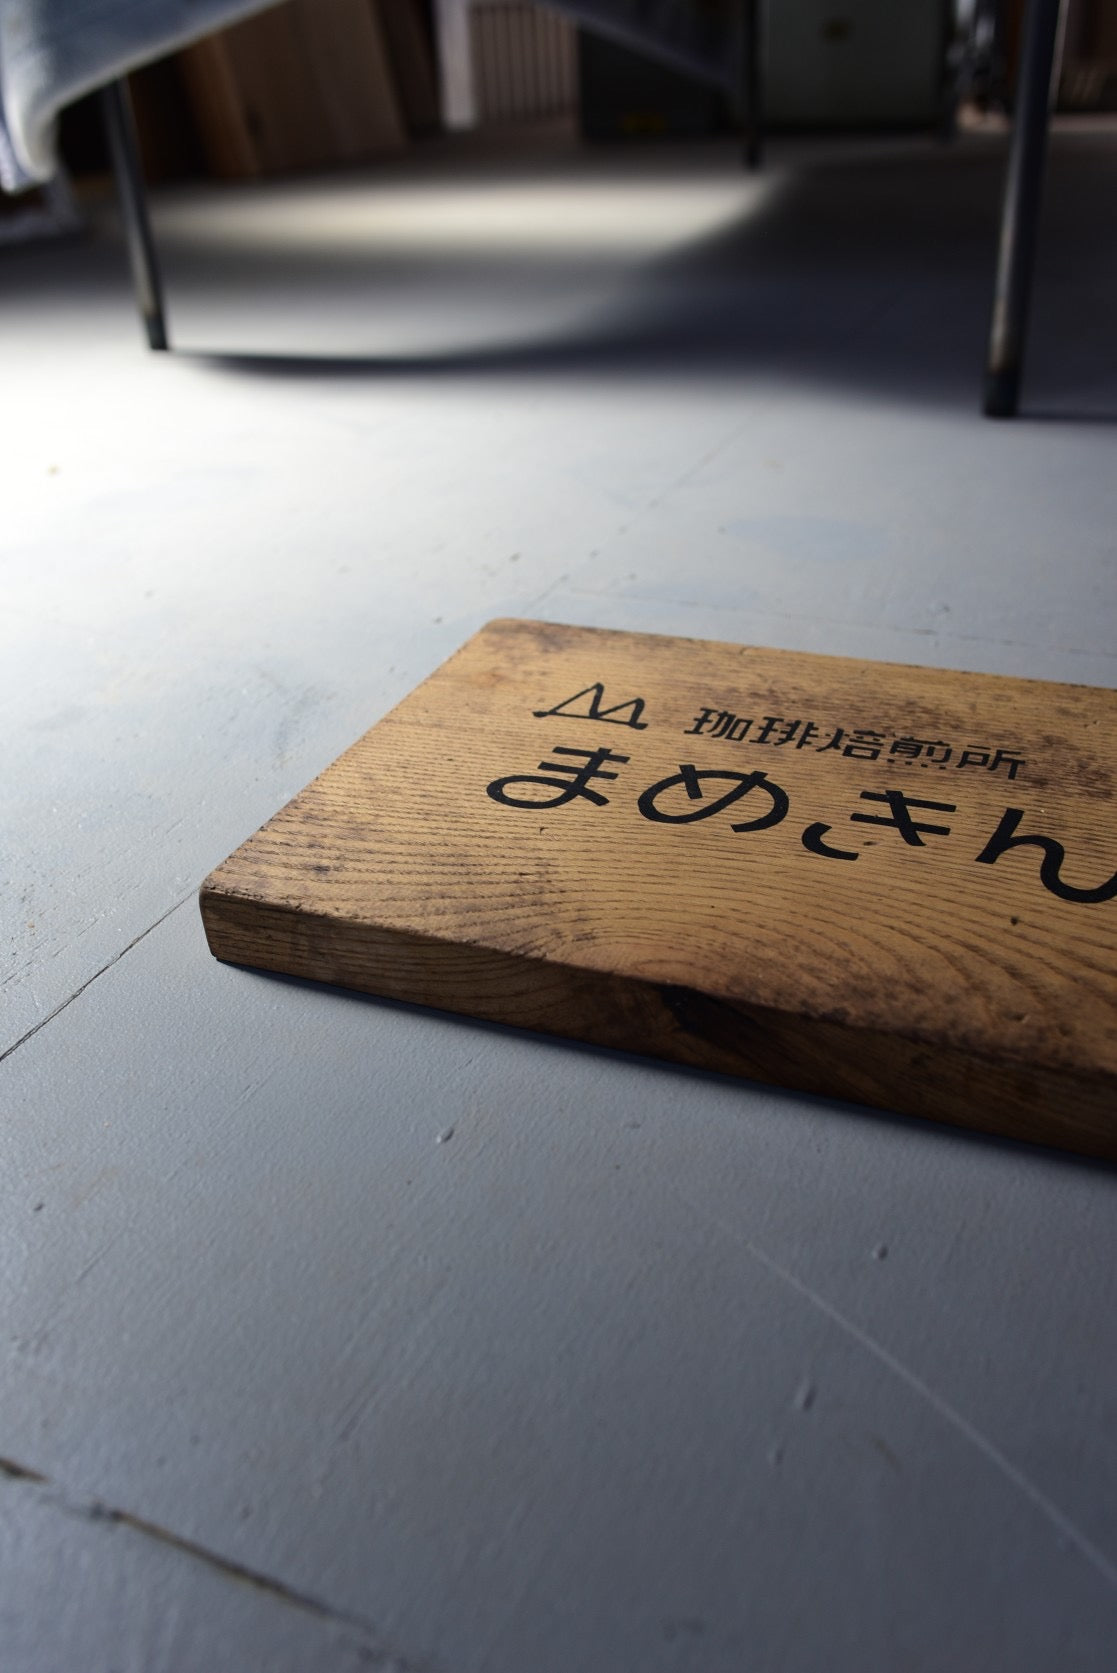 珈琲焙煎所
まめきん